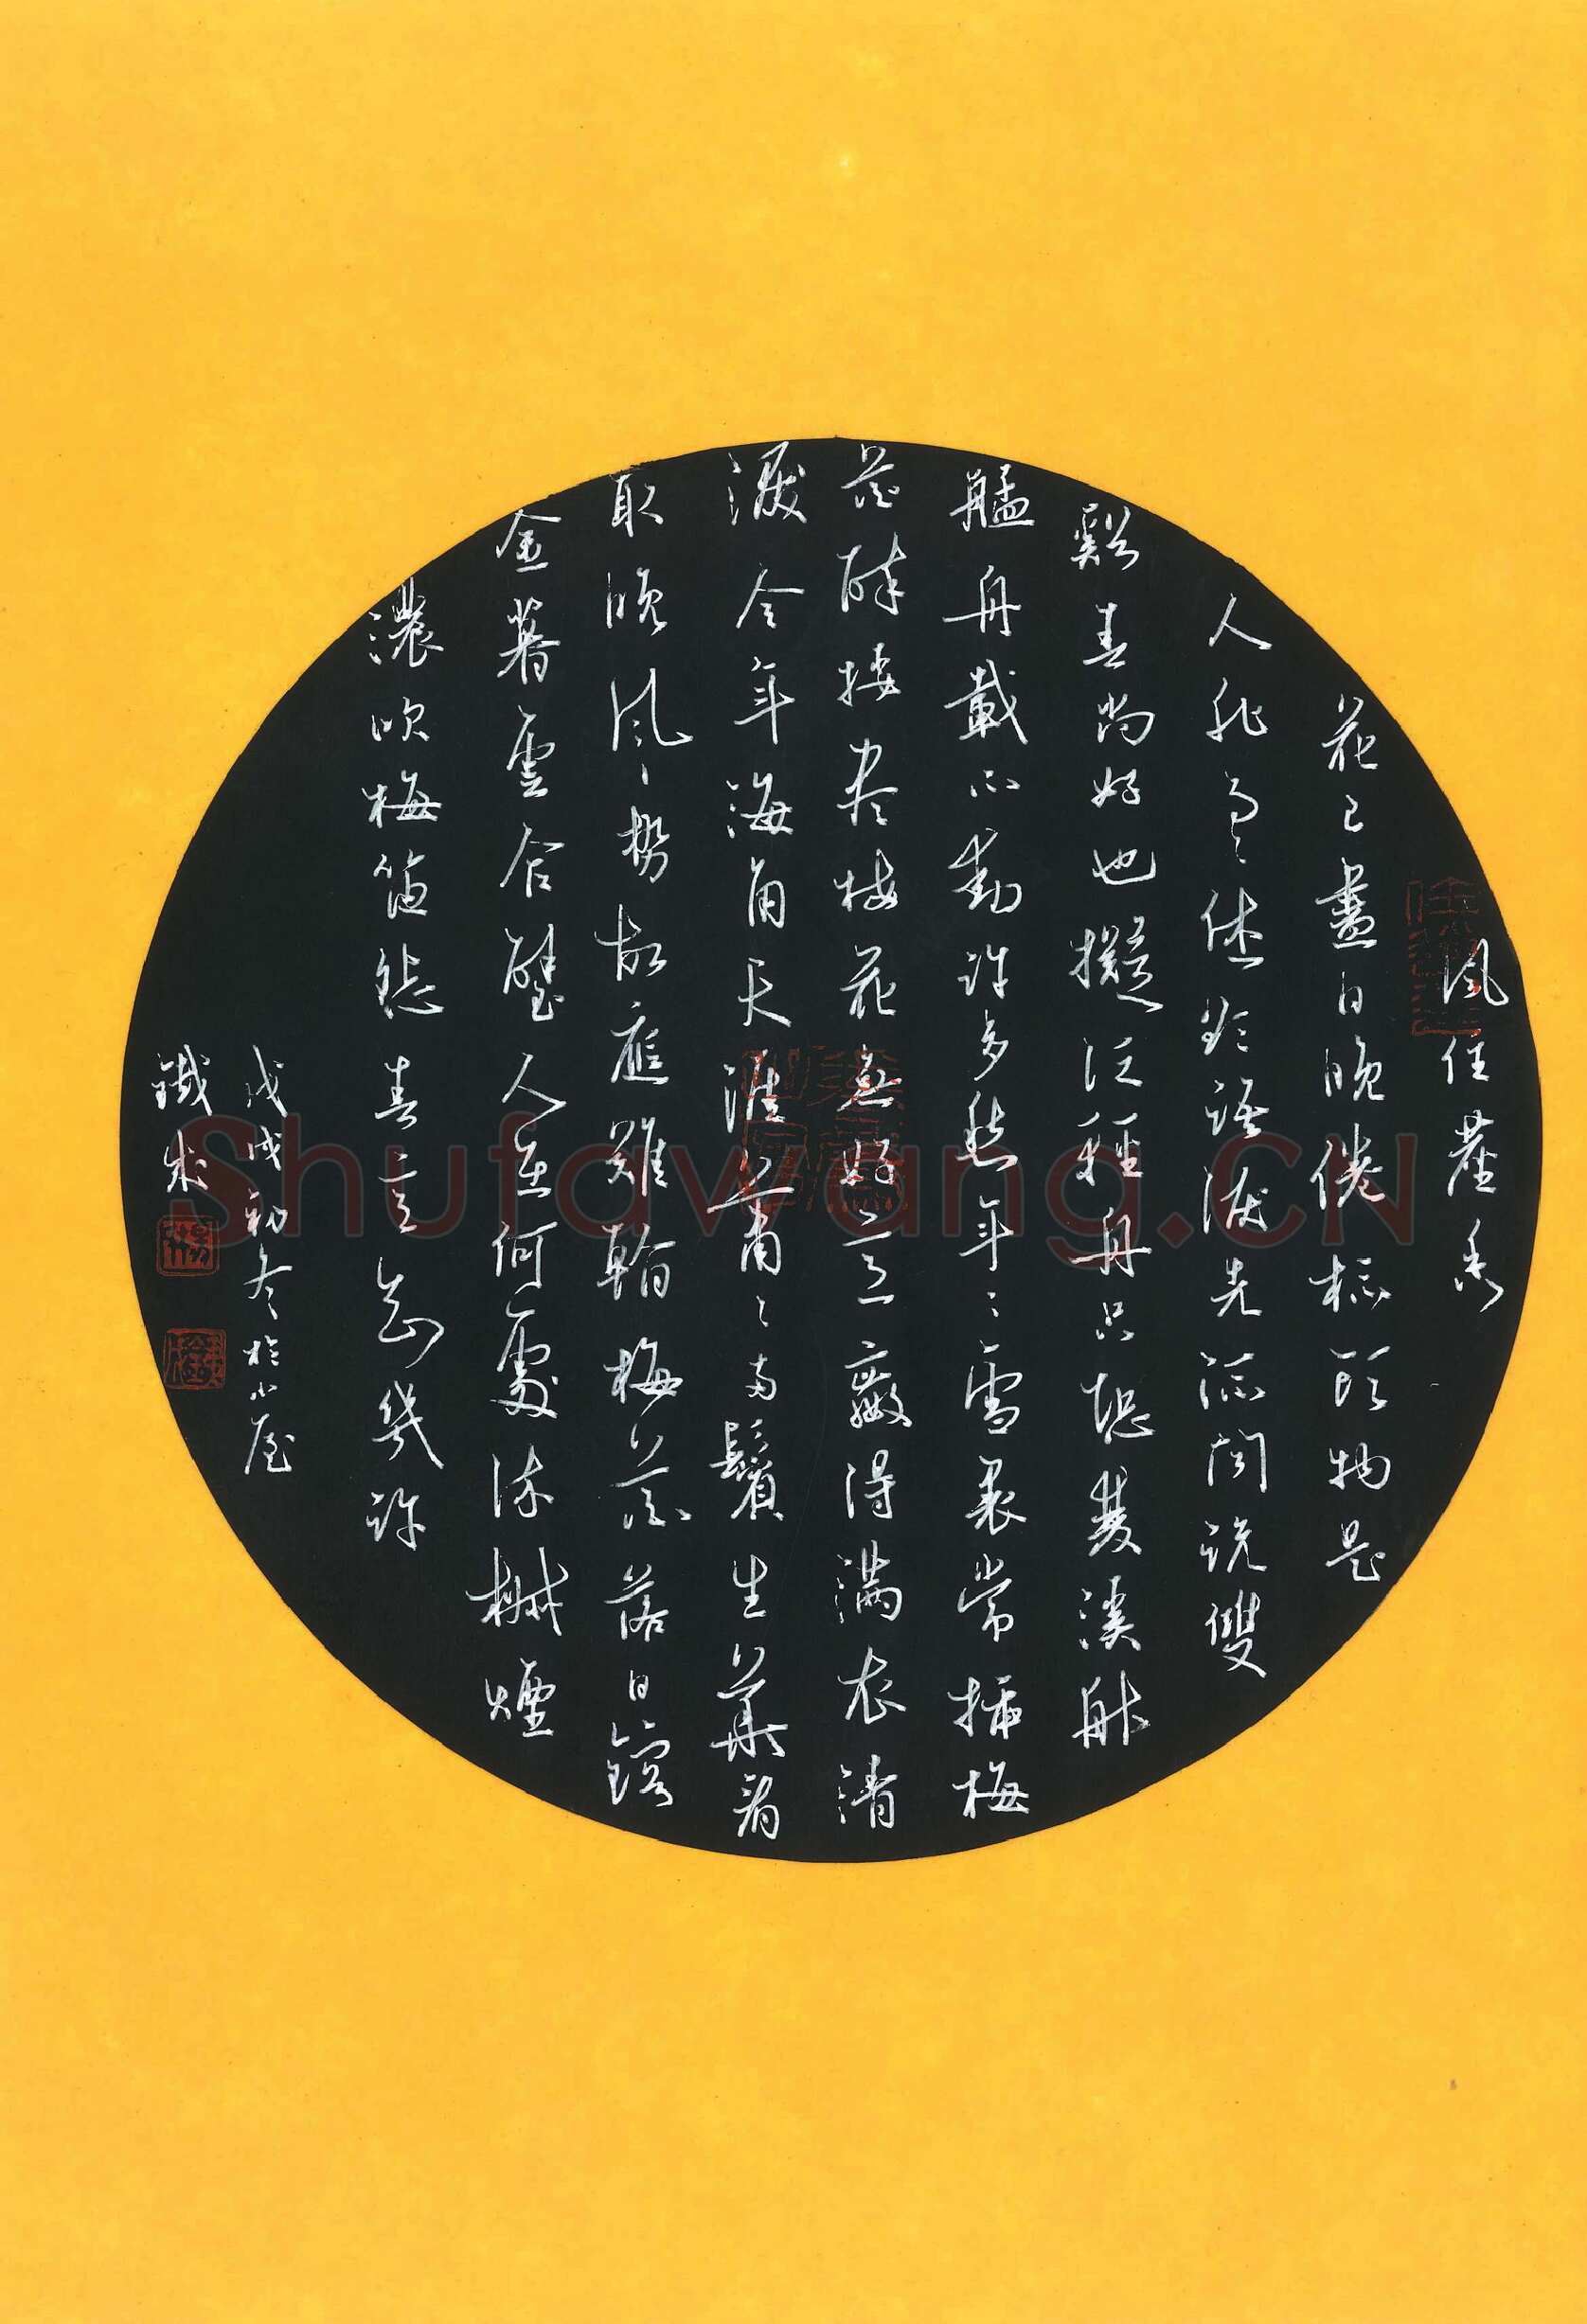 風住塵香
花已盡日晚倦梳頭物是
人非事々休欲語淚先流聞說雙
谿春尚好也擬泛輕舟只恐雙溪舴
艋舟載不動許多愁年々雪裏常插梅
花醉挼尽梅花無好意贏得滿衣清
淚今年海角天涯蕭々兩鬢生華看
取晚風々勢故應難看梅花落日鎔
金暮雲合璧人在何處染柳煙
濃吹梅笛怨春意知幾許
戊戌初冬於小屋
鐵
Shufawang.CN